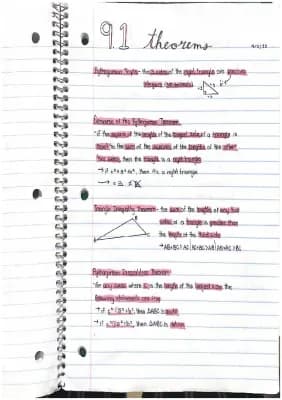 9.1 theorems
Pythagorean Triple - the 3 sides of the right triangle are positive
integers (no decimals)
Converse of the Pythagorean Theorem
• if the square of the length of the longest side of a triangle is
equal to the sum of the squares of the lengths of the other
two sides, then the triangle is a right triangle
→ if c² = a² + b², then it's a right triangle
Triangle Inequality Theorem - the sum of the lengths of any two
sides of a triangle is greater than
the length of the third side
→ AB+BC>AC AC+BC>AB AB+AC>BC
Pythagorean Inequalities Theorem
• for any where is the length of the longest side, the
following statements are true
→ if c² < a² + b², then ΔABC is acute
→ if c² > a² + b², then ΔABC is obtuse